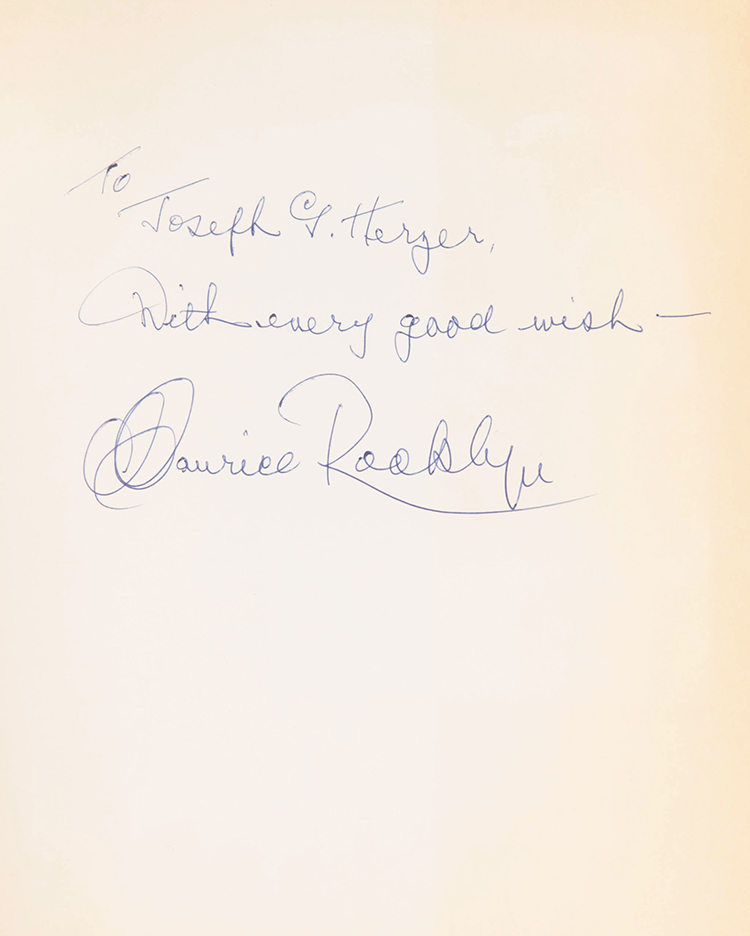 To
Joseph G. Herzer,
With every good wish —
Maurice Rooklyn